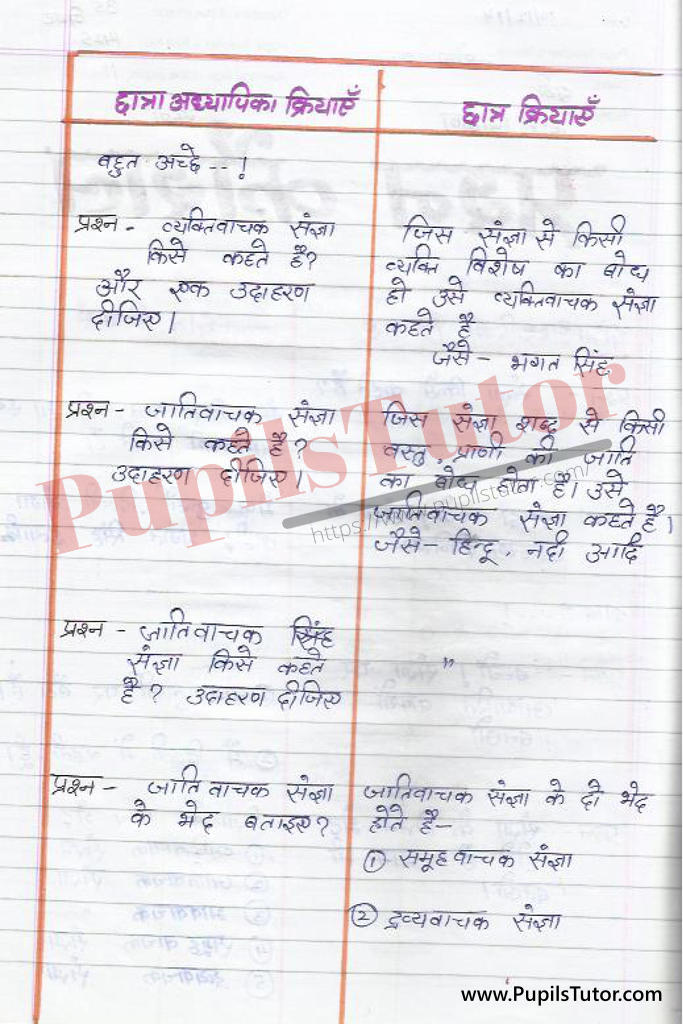 छात्रा अध्यापिका क्रियाएँ
छात्र क्रियाएँ
बहुत अच्छे --!
प्रश्न - व्यक्तिवाचक संज्ञा
किसे कहते है?
और एक उदाहरण
दीजिए।
जिस संज्ञा से किसी
व्यक्ति विशेष का बोध
हो उसे व्यक्तिवाचक संज्ञा
कहते है
जैसे - भगत सिंह
प्रश्न - जातिवाचक संज्ञा
किसे कहते है?
उदाहरण दीजिए।
जिस संज्ञा शब्द से किसी
वस्तु प्राणी की जाति
का बोध होता है। उसे
जातिवाचक संज्ञा कहते है।
जैसे हिन्दू, नदी आदि
प्रश्न - जातिवाचक
संज्ञा किसे कहते
है? उदाहरण दीजिए
"
प्रश्न - जातिवाचक संज्ञा
के भेद बताइए?
जातिवाचक संज्ञा के दो भेद
होते है-
① समूहवाचक संज्ञा
② द्रव्यवाचक संज्ञा
PupilsTutor
www.PupilsTutor.com